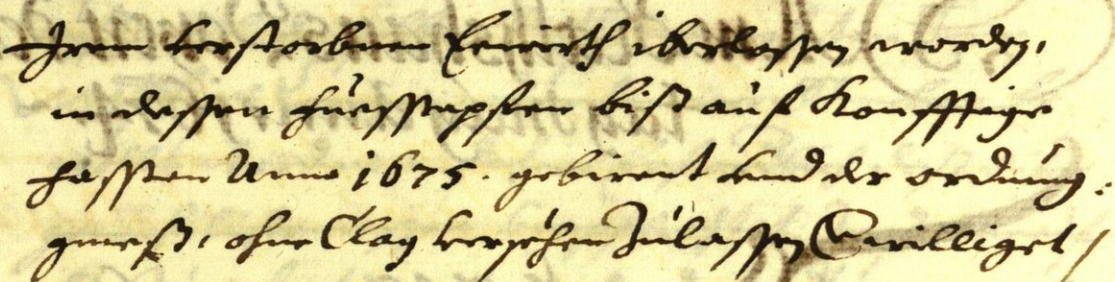 Irem verstorbnen Ewirth iberlassen worden,
in dessen fuesstapfen biß auf Konfftige
fassten Anno 1675. gebirent vnd der ordnung
gmeß, ohne Clag versehen Zulassen Bewilliget /